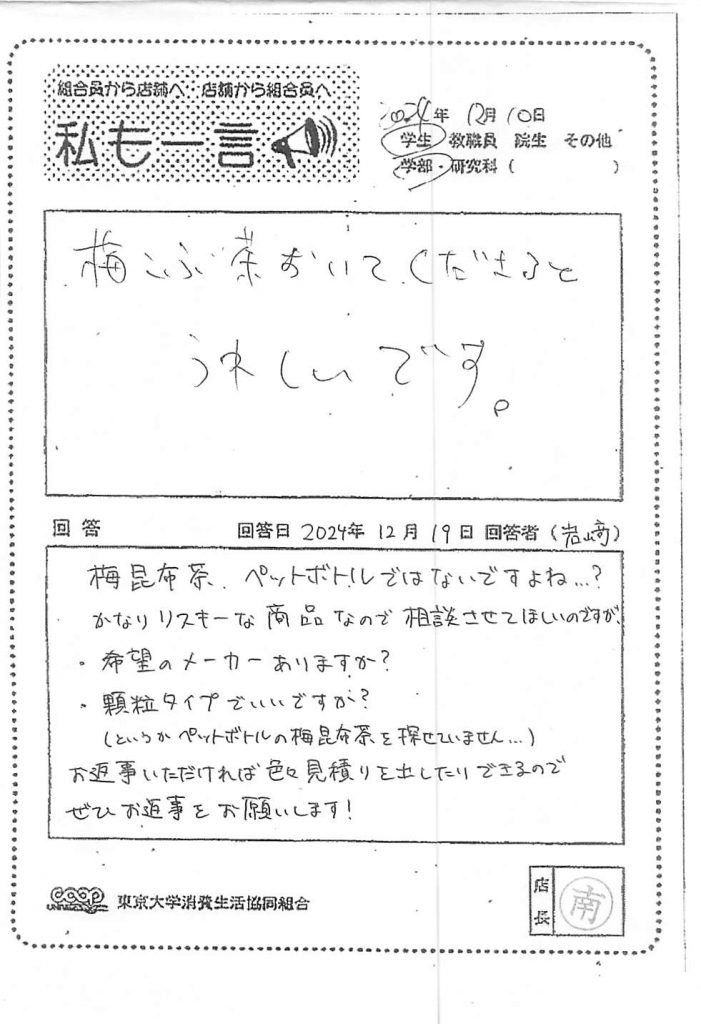 組合員から店舗へ・店舗から組合員へ
私も一言
2024年 12月 10日
学生 教職員 院生 その他
学部・研究科 ( )
梅こぶ茶おいてくださると
うれしいです。
回答 回答日 2024年 12月 19日 回答者 (岩﨑)
梅昆布茶、ペットボトルではないですよね…?
かなりリスキーな商品なので相談させてほしいのですが、
・希望のメーカーありますか?
・顆粒タイプでいいですか?
(というかペットボトルの梅昆布茶を探せていません…)
お返事いただければ色々見積りを出したりできるので
ぜひお返事をお願いします!
coop 東京大学消費生活協同組合
店長 南